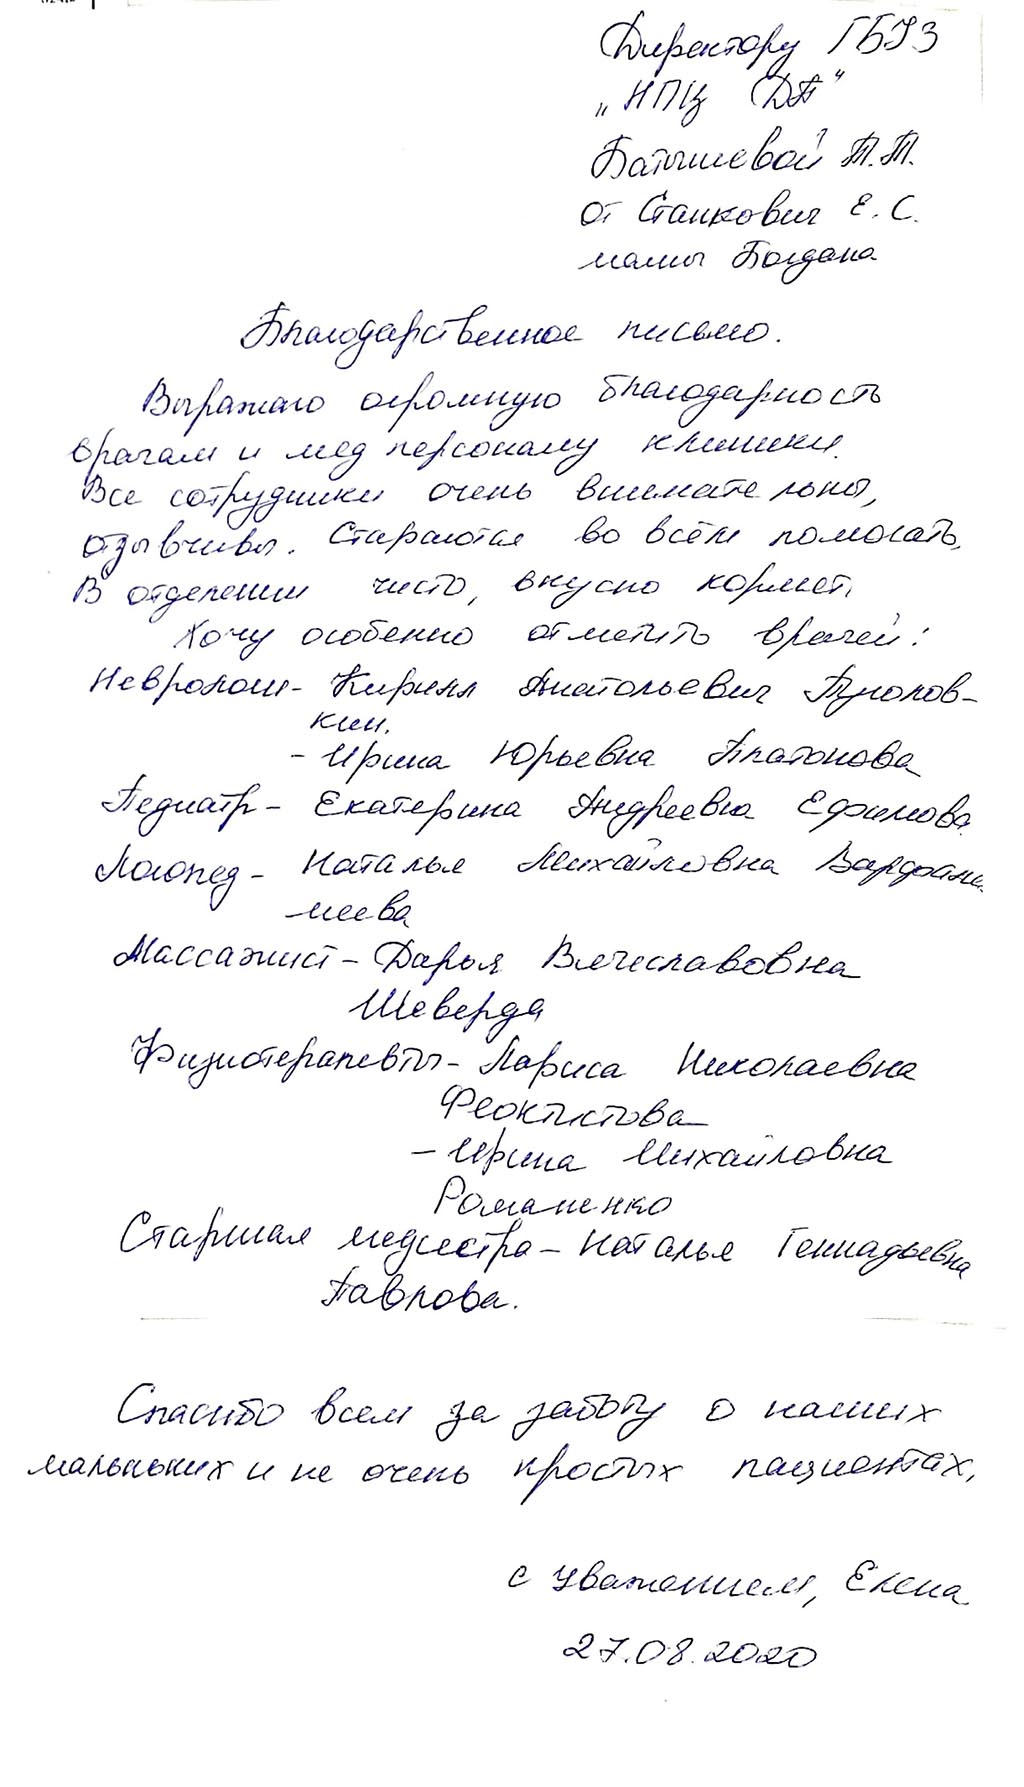 Директору ГБУЗ
„НПЦ ДП"
Батышевой Т.Т.
от Станкович Е.С.
мамы Богдана
Благодарственное письмо.
Выражаю огромную благодарность
врачам и мед персоналу клиники.
Все сотрудники очень внимательны,
отзывчивы. Стараются во всём помогать.
В отделении чисто, вкусно кормят.
Хочу особенно отметить врачей:
Неврологи - Кирилл Анатольевич
кин.
- Ирина Юрьевна Платонова
Педиатр - Екатерина Андреевна Ефимова
Логопед - Наталья Михайловна
меева
Массажист - Дарья Вячеславовна
Шеверда
Физиотерапевты - Лариса Николаевна
Феоктистова
- Ирина Михайловна
Романенко
Старшая медсестра - Наталья Геннадьевна
Павлова.
Спасибо всем за заботу о наших
маленьких и не очень простых пациентах.
с уважением, Елена
27.08.2020